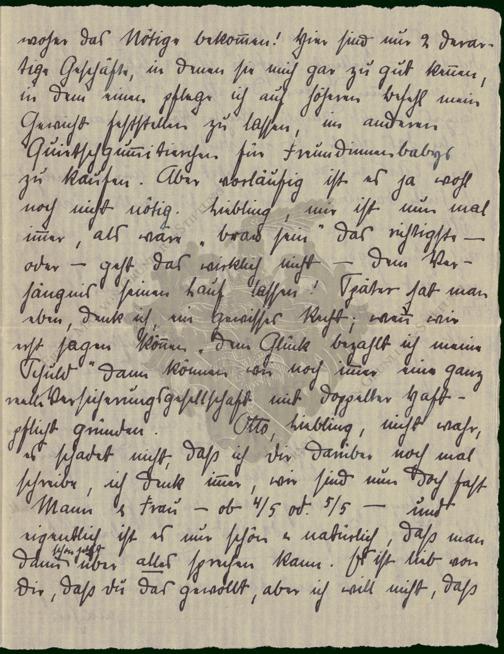 woher das Nötige bekom̄en! Hier sind nur 2 derar-
tige Geschäfte, in denen sie mich gar zu gut kennen,
in dem einen pflege ich auf höheren Befehl mein
Gewicht feststellen zu lassen, im anderen
Quietschgum̄itierchen für Freundinnenbabys
zu kaufen. Aber vorläufig ist es ja wohl
noch nicht nötig. Liebling, mir ist nun mal
im̄er, als wäre „brav sein" das richtigste —
oder — geht das wirklich nicht — dem Ver-
hängnis seinen Lauf lassen! Später hat man
eben, denk ich, ein gewisses Recht; wen̄ wir
erst sagen können „dem Glück bezahlt ich meine
Schuld" dann können wir noch im̄er eine ganz
Versicherungsgesellschaft mit doppelter Haft-
pflicht gründen. Otto, Liebling, nicht wahr,
es schadet nicht, daß ich Dir darüber noch mal
schreibe, ich denk im̄er, wir sind nun doch fast
Mann & Frau — ob 4/5 od. 5/5 — und
eigentlich ist es nur schön & natürlich, daß man
dann über alles sprechen kann. Es ist lieb von
Dir, daß Du das gewollt, aber ich will nicht, daß